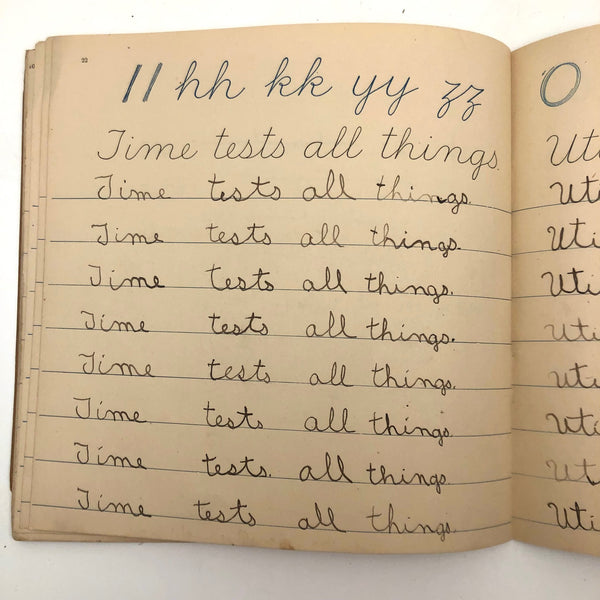 22
ll hh kk yy zz O
Time tests all things.
Time tests all things.
Time tests all things.
Time tests all things.
Time tests all things.
Time tests all things.
Time tests all things.
Time tests. all things.
Time tests all things.